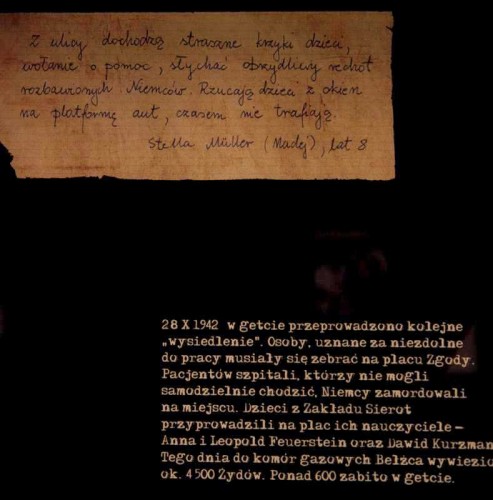 Z ulicy dochodzą straszne krzyki dzieci,
wołanie o pomoc, słychać obrzydliwy rechot
rozbawionych Niemców. Rzucają dzieci z okien
na platformę aut, czasem nie trafiają.
Stella Müller (Madej), lat 8
28 X 1942 w getcie przeprowadzono kolejne
„wysiedlenie". Osoby, uznane za niezdolne
do pracy musiały się zebrać na placu Zgody.
Pacjentów szpitali, którzy nie mogli
samodzielnie chodzić, Niemcy zamordowali
na miejscu. Dzieci z Zakładu Sierot
przyprowadzili na plac ich nauczyciele –
Anna i Leopold Feuerstein oraz Dawid Kurzman
Tego dnia do komór gazowych Bełżca wywiezio
ok. 4500 Żydów. Ponad 600 zabito w getcie.